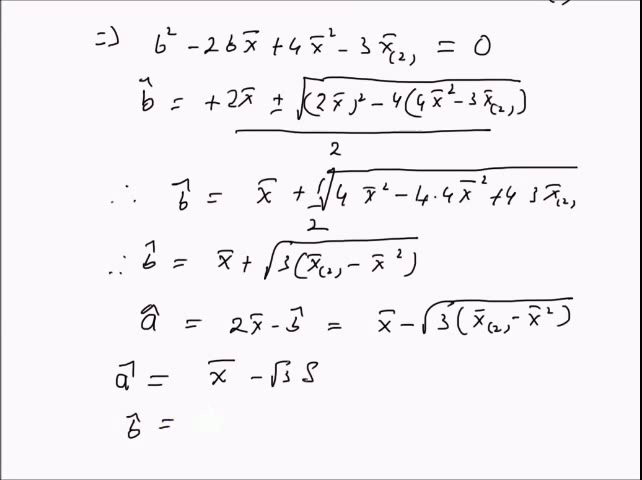 => b² - 2bx̄ + 4x̄² - 3x̄₍₂₎ = 0
b̂ = +2x̄ ± √((2x̄)² - 4(4x̄² - 3x̄₍₂₎)) / 2
∴ b̂ = x̄ + 1/2 √(4x̄² - 4·4x̄² + 4 3x̄₍₂₎)
∴ b̂ = x̄ + √(3(x̄₍₂₎ - x̄²))
â = 2x̄ - b̂ = x̄ - √(3(x̄₍₂₎ - x̄²))
â = x̄ - √3 S
b̂ =